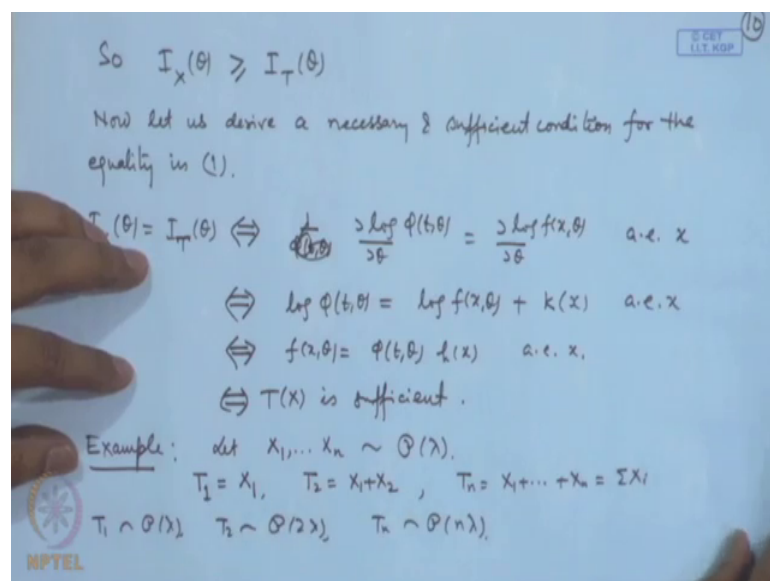 10
© CET
I.I.T. KGP
So I_X(θ) ⩾ I_T(θ)
Now let us derive a necessary & sufficient condition for the
equality in (1).
(θ) = I_T(θ) ⇔ ∂ log φ(t,θ)/∂θ = ∂ log f(x,θ)/∂θ a.e. x
⇔ log φ(t,θ) = log f(x,θ) + k(x) a.e. x
⇔ f(x,θ) = φ(t,θ) h(x) a.e. x.
⇔ T(X) is sufficient.
Example: Let X₁,... Xₙ ~ P(λ).
T₁ = X₁, T₂ = X₁+X₂, Tₙ = X₁+⋯+Xₙ = ΣXi
T₁ ~ P(λ), T₂ ~ P(2λ), Tₙ ~ P(nλ).
NPTEL